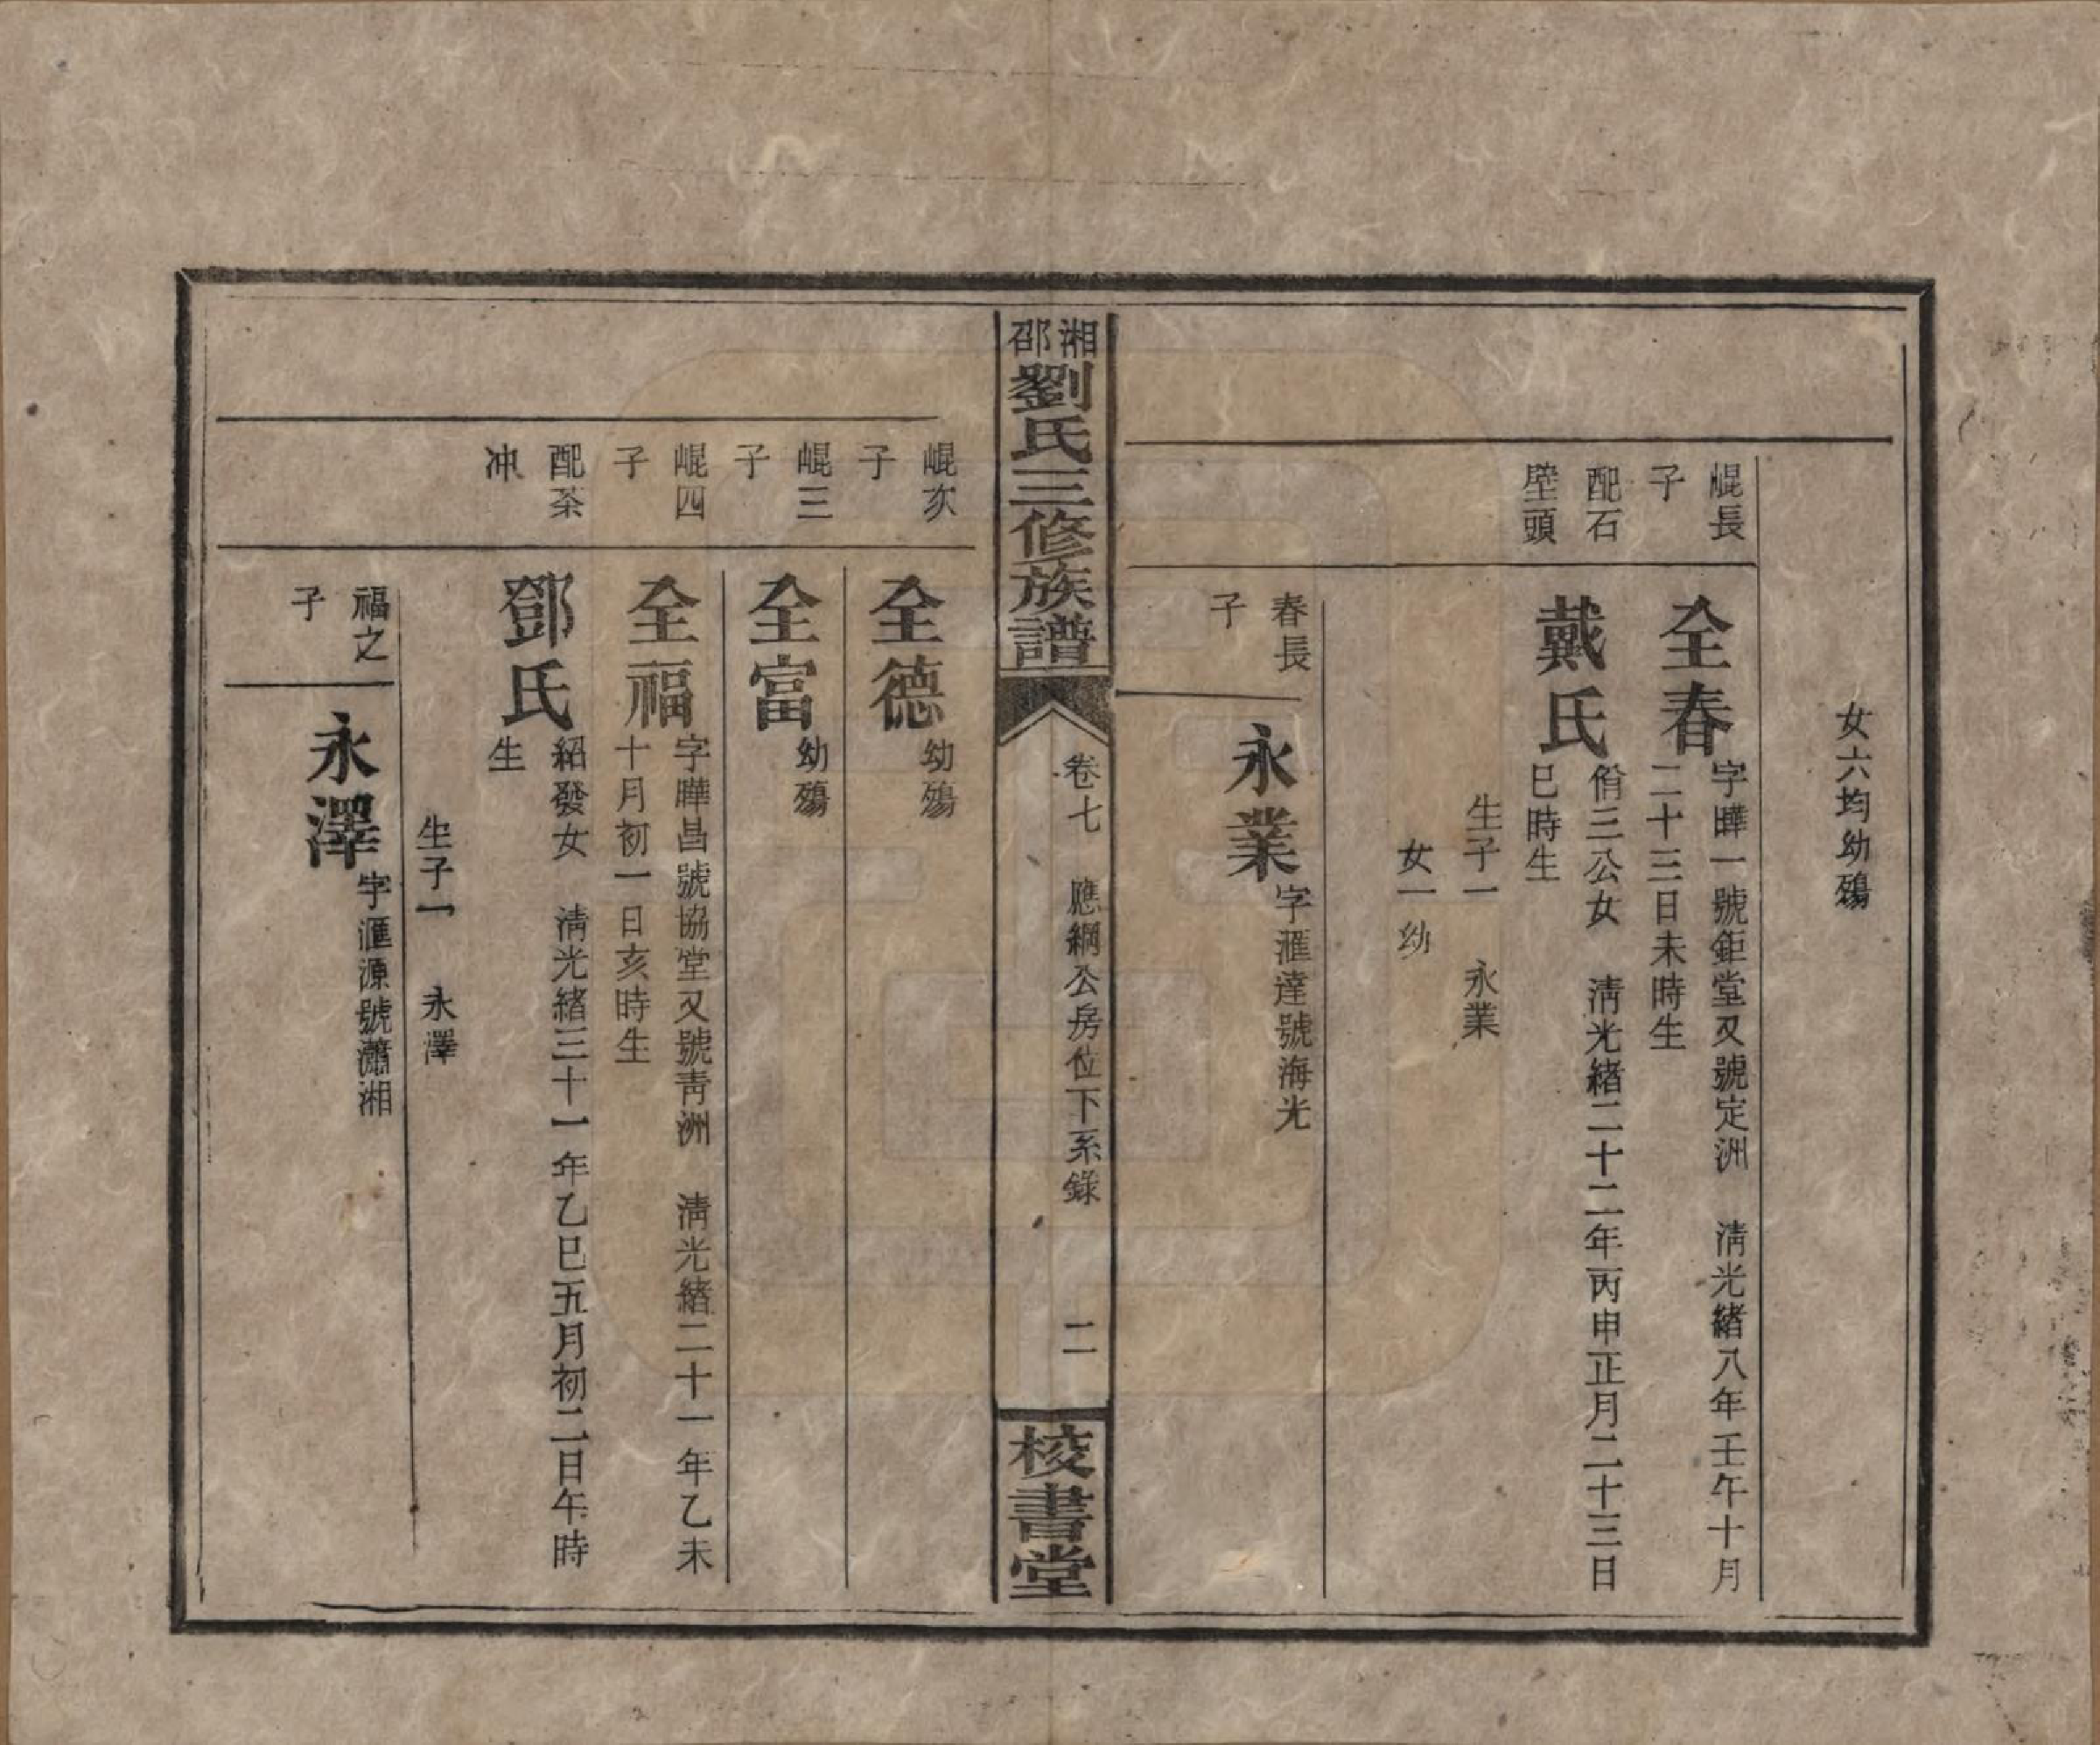 女六均幼殤
崐長
子
全春
字曄一號鉅堂又號定洲　淸光緒八年壬午十月
二十三日未時生
配石
壁頭
戴氏
脩三公女　淸光緒二十二年丙申正月二十三日
巳時生
生子一　永業
女一幼
春長
子
永業
字滙達號海光
湘邵劉氏三修族譜
卷七　應綱公房位下系錄　二
校書堂
崐次
子
全德
幼殤
崐三
子
全富
幼殤
崐四
子
全福
字曄昌號協堂又號靑洲　淸光緒二十一年乙未
十月初一日亥時生
配茶
冲
鄧氏
紹發女　淸光緒三十一年乙巳五月初二日午時
生
生子一　永澤
福之
子
永澤
字滙源號瀟湘